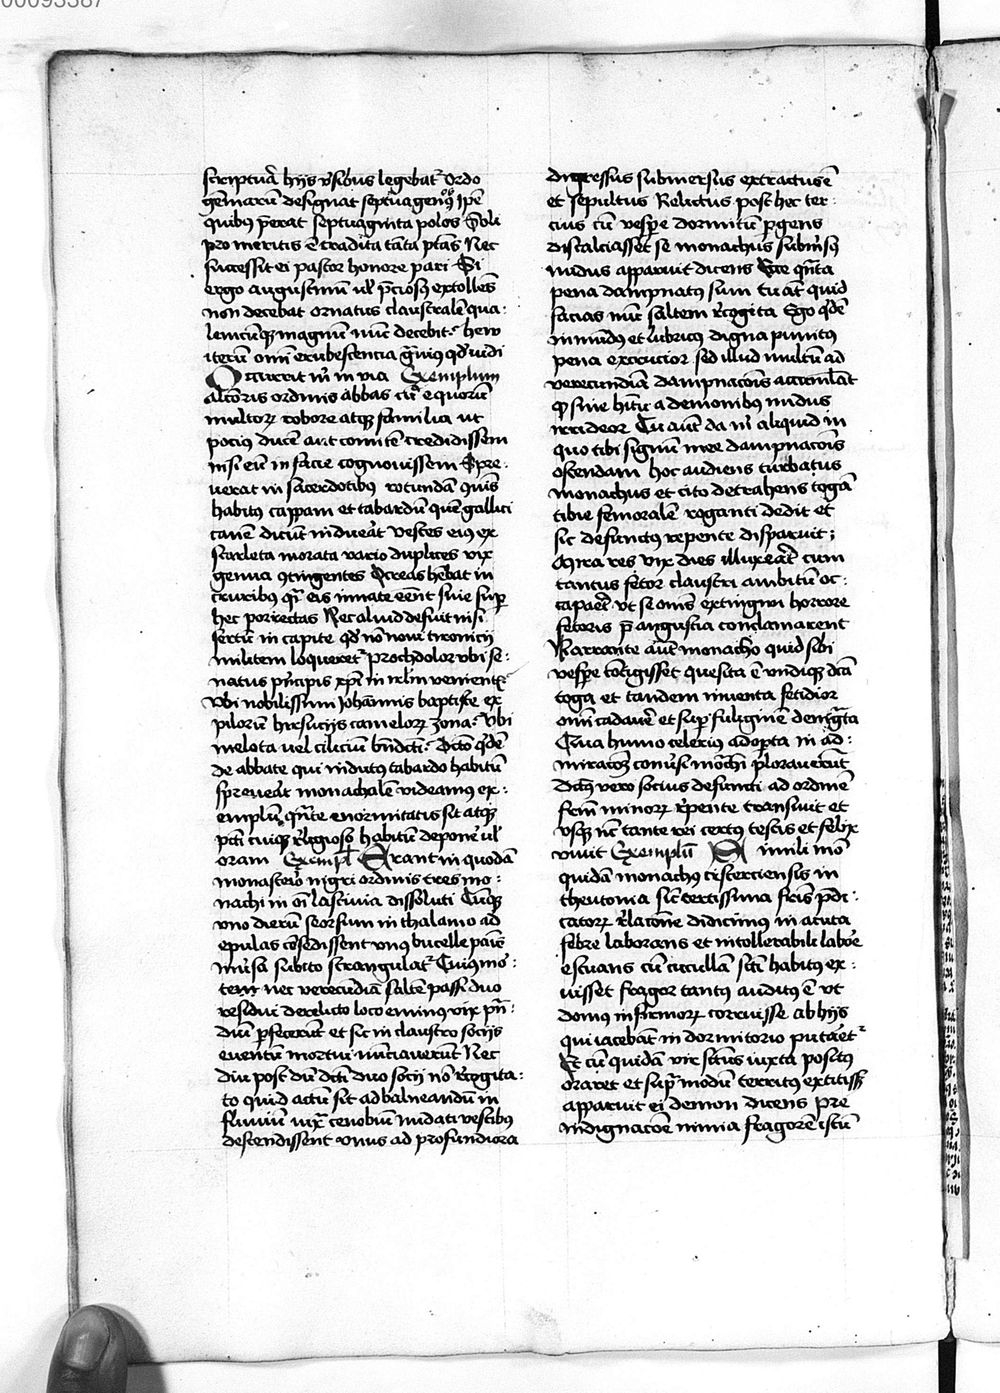 00093387
scriptura hijs v̉sibus legebat᷑ Ordo
gem̄arū designat septuagenꝰ Ip̄e
quibus p̄erat septuaginta polos Soli
pro meritis ē tradita tāta ptās Nec
successit ei pastor honore pari Si
ergo augustinū ul̓ p̄ciosꝰ extolles
non decebat ornatus claustralē qua-
lemcūqꝫ magnū nūc decebit heu
iterū om̄i erubescencia g̃uius qđ uidi
Occurrit m̉ in via Exemplum
alterius ordinis abbas cū equorū
multorꝝ robore atqꝫ familia ut
pocius ducē aut comitē credidissem
nisi eū in facie cognouissem Spre-
uerat in sacerdotibꝫ rotundā ꝯuis
habitꝰ cappam et tabardū quē gallici
tauē dicūt induēat vestes eius ex
scarleta morata vario duplices vix
genua ꝯtingentes Ocreas hēbat in
cruribus q̉ eis innate eēnt sine sup̱
hec porrectas Nec aliud defuit nisi
sertū in capite qđ nō noui tironicū
militem loqueret᷑ prochdolor vbi se-
natus p̉ncipis xp̄i in irl̄m venientꝭ
Vbi nobilissimi Johānnis baptiste ex
pilorū hirsucijs camelorꝝ zona Vbi
melota uel ciliciū bn̄dcti Dicto q̉dē
de abbate qui indutꝰ tabardo habitū
sp̄reuēat monachalē videamꝰ ex-
emplū q̄nte enormitatis sit atqꝫ
pcti cuiqꝫ religioso habitū deponē ul̓
oram Exempl̓ Erant in quodā
monasterio nigri ordinis tres mo-
nachi in oī lasciuia dissoluti Cūqꝫ
vno dierū seorsum in thalamo ad
epulas cōsedissent vnꝰ bucelle pais
missa subito strangulat᷑ Cuiꝰ mo-
tem nec verecūdiā saltē passi duo
residui derelicto loco eminꝰ vix pn̄-
diū p̱fecerūt et sic in claustro socijs
euentum mortui nūciauerūt Nec
diu post dū dcti duo socij nō recogita-
to quid actū sit ad balneandū in
fluuiū iuxᵃ cenobiū nudati vestibꝫ
descendissent vnus ad profundiora
digressus submersus extractus ē
et sepultus Relictus post hec ter-
cius cū vesp̱e dormitū p̱gens
discalciasset se monachus submsꝰ
nudus apparuit dicens Ecce q̄nta
pena dampnatꝰ sum tu at̄ quid
facias nūc saltem recogita Ego q̉dē
inmūdꝰ et lubricꝰ digna punitꝰ
pena excrucior sed illud multū ad
verecundiā dampnacōis accumlat
ꝙ sine hitu a demonibꝫ nudus
irrideor Tu autē da m̉ aliquid in
quo tibi signū mee dampnacōis
ostendam hoc audiens turbatus
monachus et cito detrahens togā
tibie femoralē roganti dedit et
sic defunctus repente disparuit
Mira res vix dies illuxerat cum
tantus fetor claustri ambitū oc-
capaēt vt se oms extingui horrore
fetoris p̄ angustia conclamarent
Narrante autē monacho quid sibi
vesp̱e cōtigisset quesita ē vndiqꝫ dcā
toga et tandem inuenta fetidior
om̄i cadauē et sup̱ fuliginē denigᵃta
Qua humo celerius adopta in ad-
miracōꝫ comusi mōchi plorauerūt
Dictꝰ vero socius defuncti ad ordinē
frm̄ minorꝝ repente transiuit et
vsqꝫ nūc tante rei certꝰ testis et felix
viuit Exemplū Simili mō
quidā monachꝰ cisterciensis in
theutonia sic̄ certissima frīs p̄di-
catorꝝ relacōne didicimꝰ in acuta
febre laborans et intollerabili laboe
estuans cū cucullā sctī habitꝰ ex-
uisset fragor tantꝰ auditꝰ ē vt
domꝰ infirmorꝝ corruisse ab hijs
qui iacebāt in dormitorio putaēt᷑
Et cū quidā vir sctūs iuxta positꝰ
oraret et supᵃ modū territꝰ extitissꝫ
apparuit ei demon dicens pre
indignacōe nimia fragorē istū